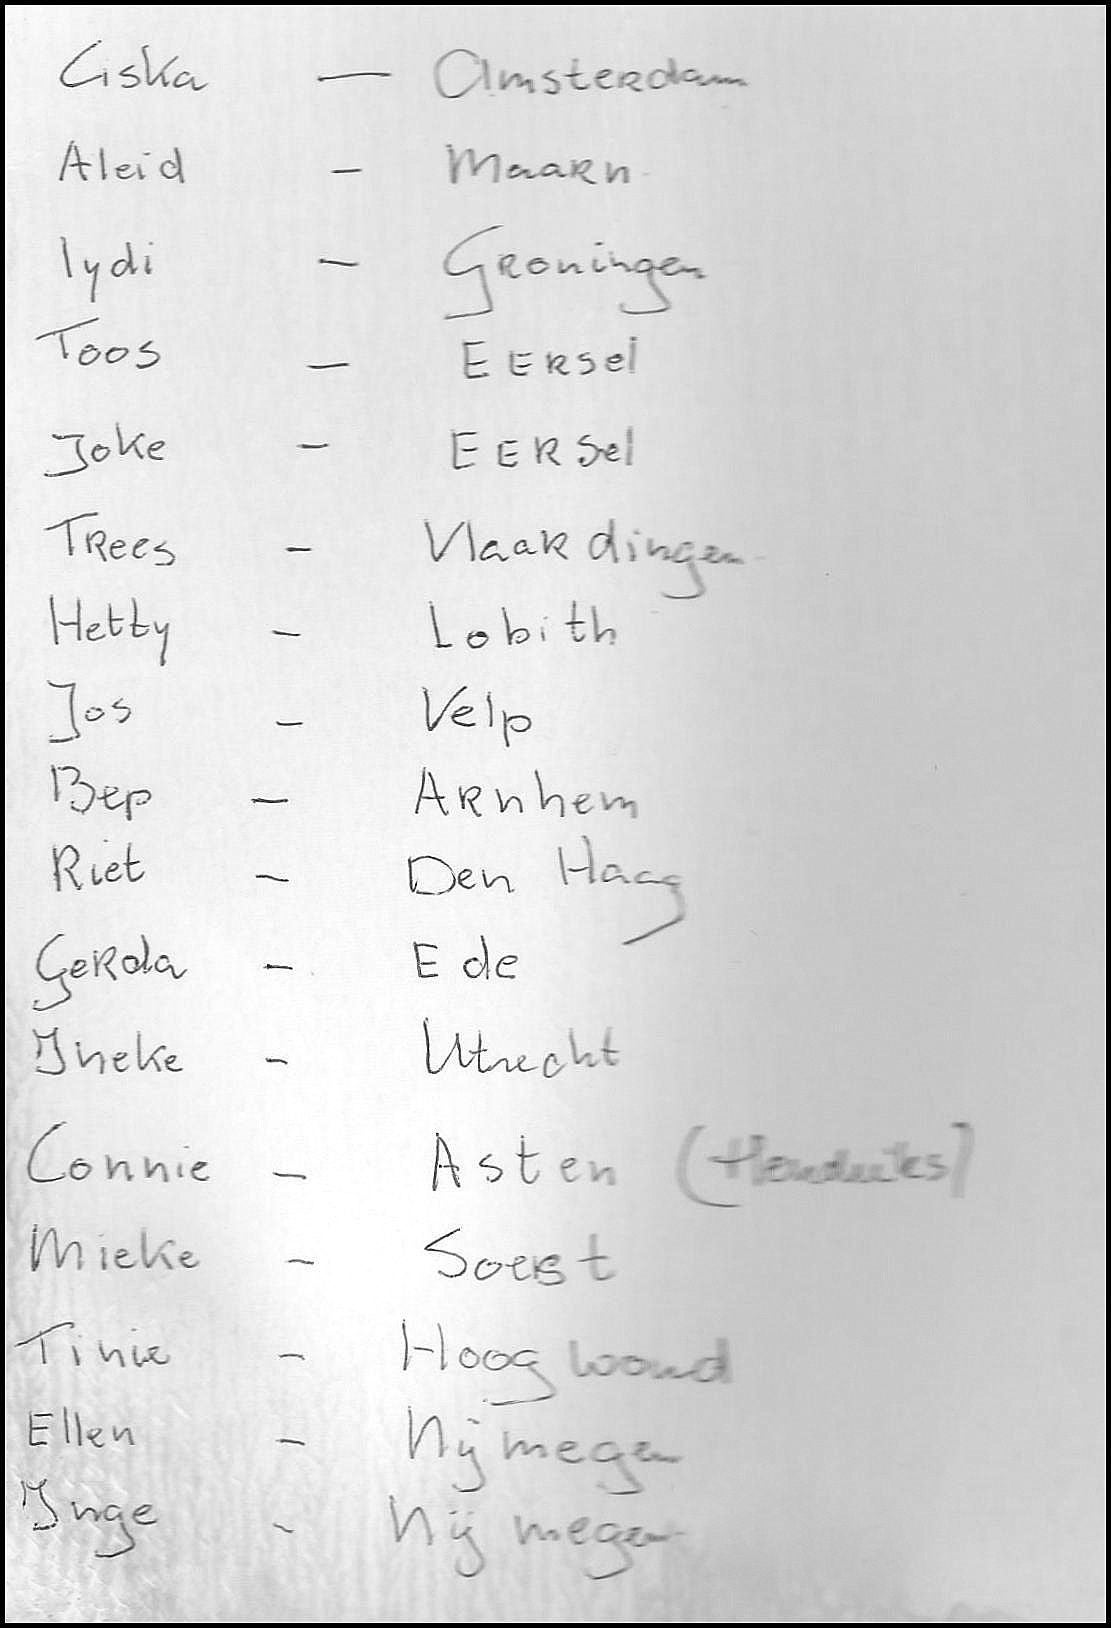 Ciska — Amsterdam
Aleid - Maarn
lydi - Groningen
Toos - Eersel
Joke - Eersel
Trees - Vlaardingen
Hetty - Lobith
Jos - Velp
Bep - Arnhem
Riet - Den Haag
Gerda - Ede
Ineke - Utrecht
Connie - Asten
Mieke - Soest
Tinie - Hoogwoud
Ellen - Nijmegen
Inge - Nijmegen